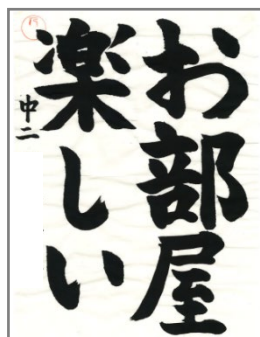 お部屋
楽しい
中二